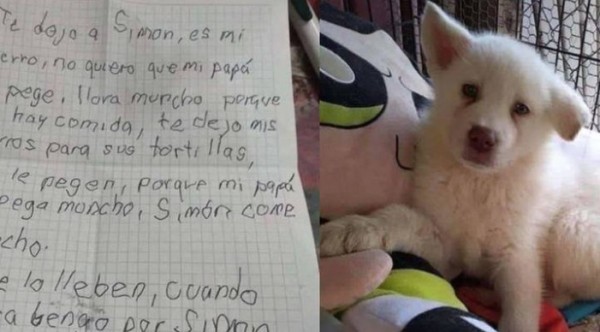 Te dejo a Simon, es mi
erro, no quiero que mi papá
pege, llora muncho porque
hay comida, te dejo mis
ros para sus tortillas,
le pegen, porque mi papá
pega muncho, Simón come
cho.
e lo lleben, cuando
a bengo por Simon